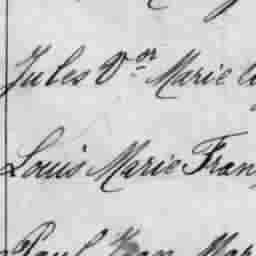 Jules Vor Marie
Louis Marie Fran
Paul Jean Mar